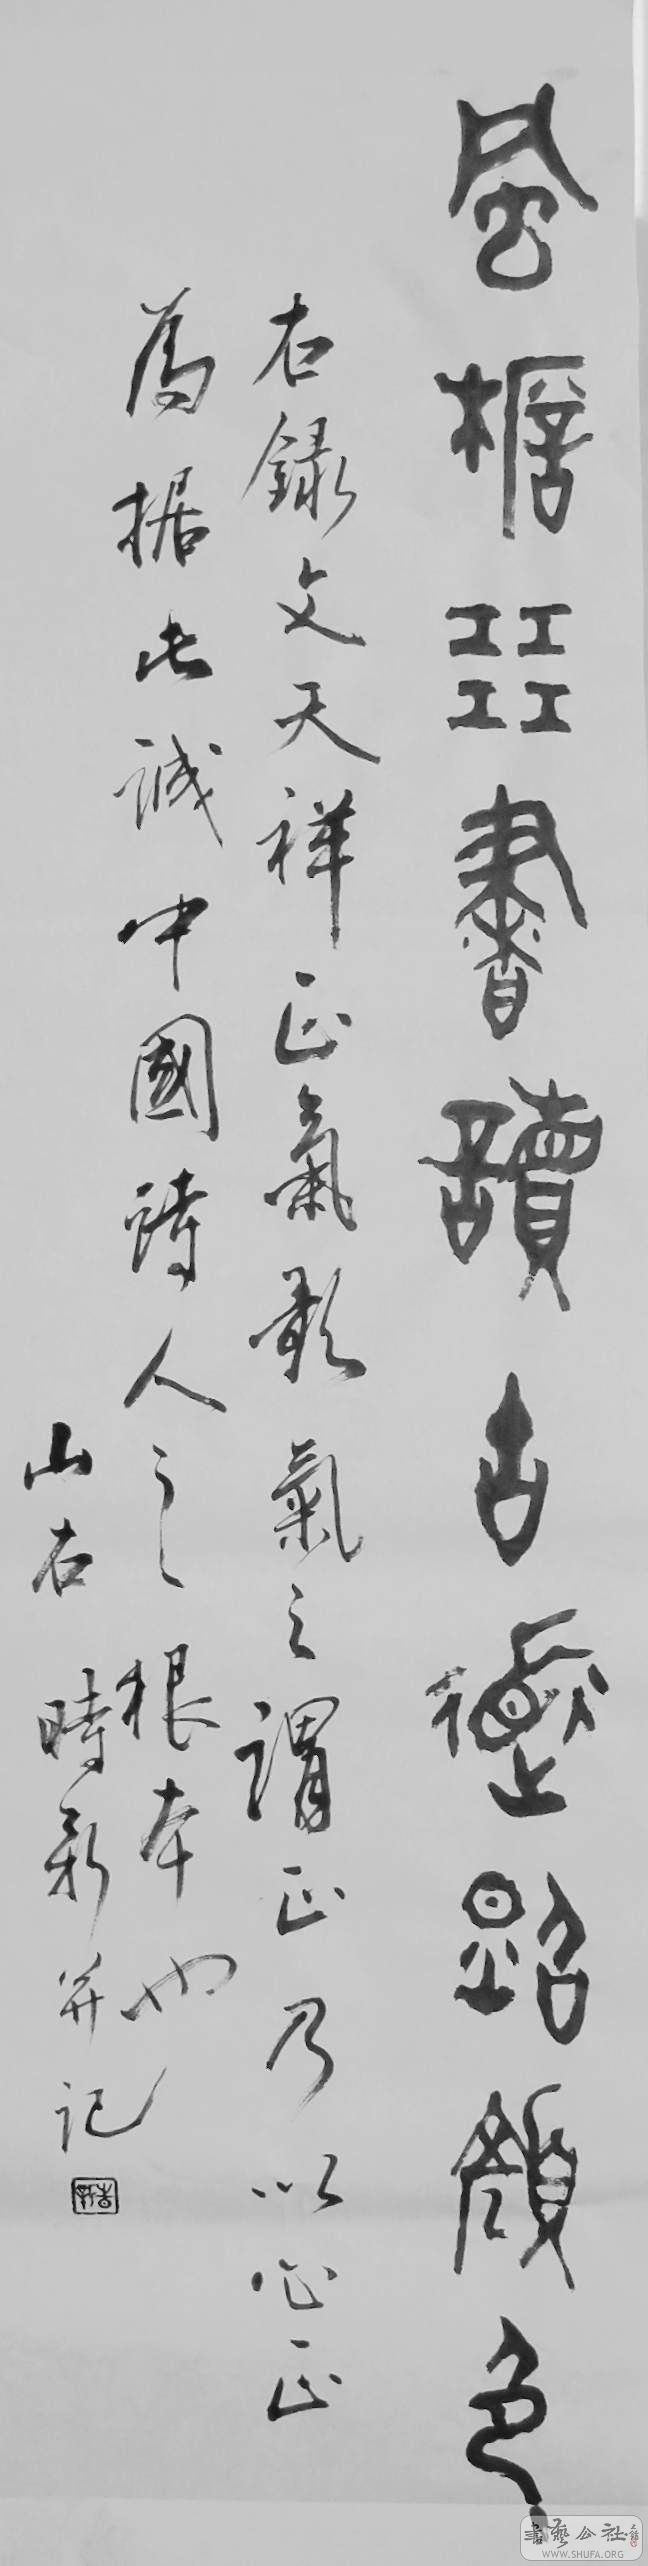 風檐展書讀古道照顏色
右錄文天祥正氣歌氣之謂正乃以心正
為據此誠中國詩人之根本也
山右時新並記
書藝公社
WWW.SHUFA.ORG